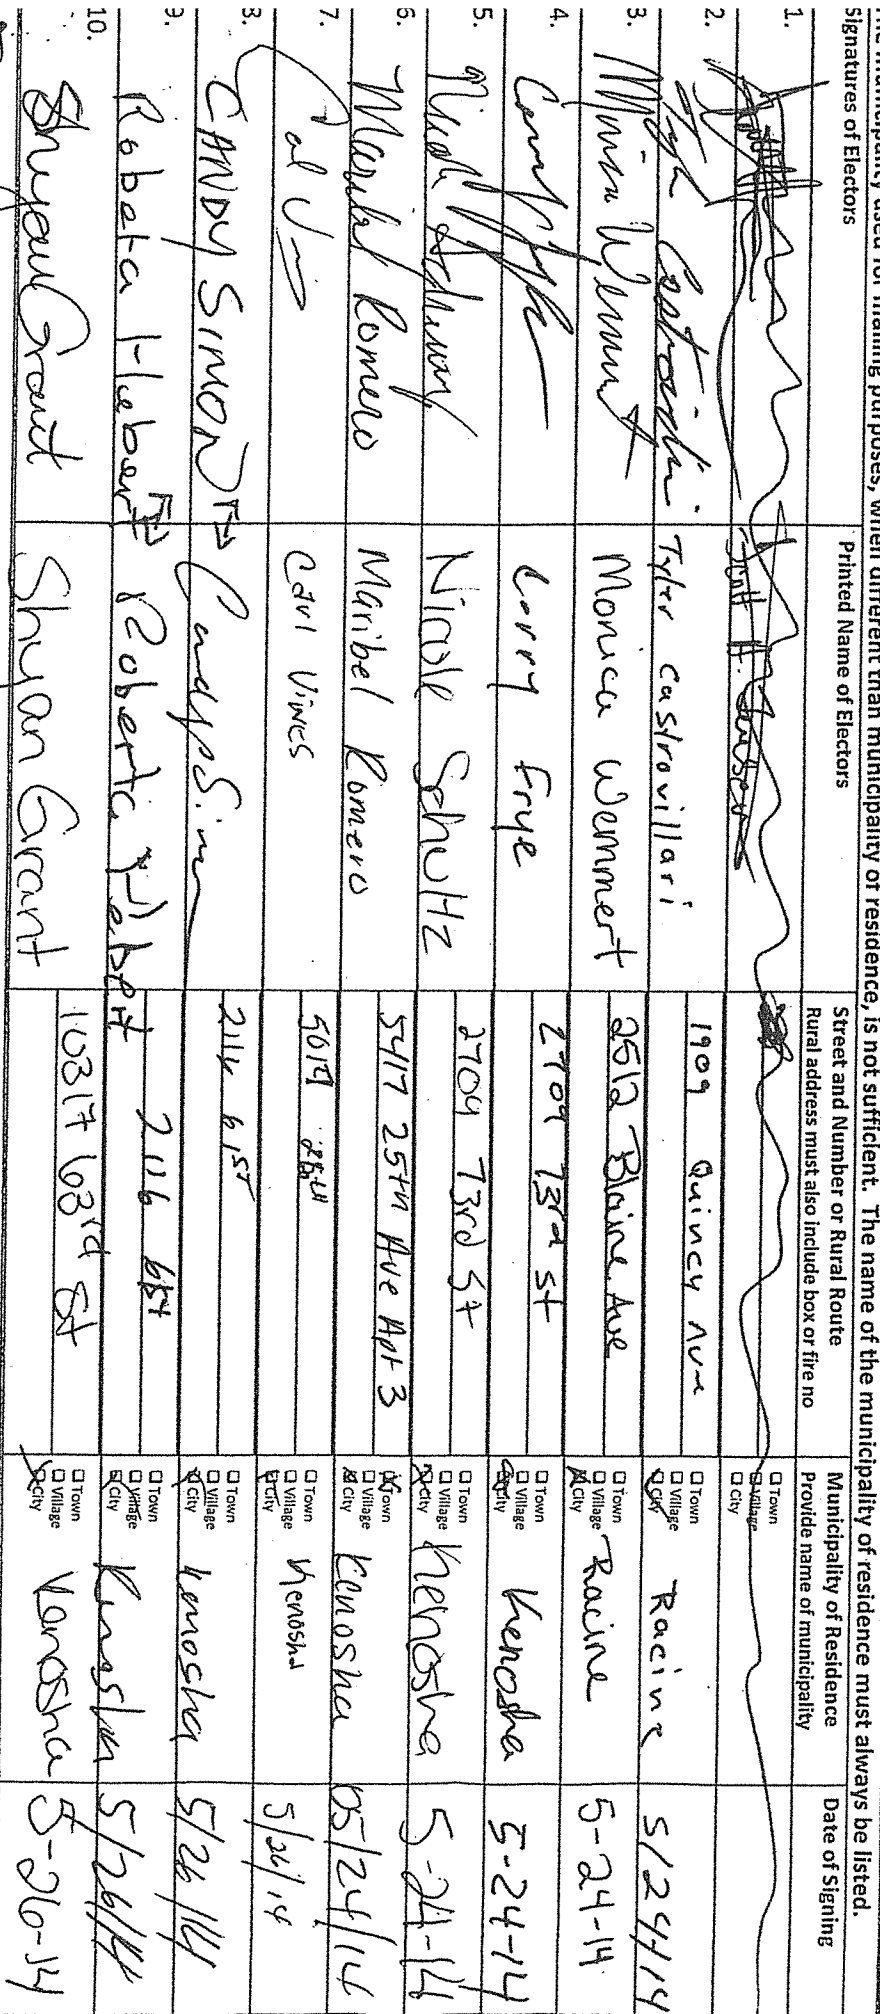 the municipality used for mailing purposes, when different than municipality of residence, is not sufficient. The name of the municipality of residence must always be listed.
Signatures of Electors Printed Name of Electors Street and Number or Rural Route Municipality of Residence Date of Signing
Rural address must also include box or fire no Provide name of municipality
1. □ Town □ Village □ City
2. Tyler Castrovillari 1909 Quincy Ave □ City Racine 5/24/14
3. Monica Wemmert Monica Wemmert 2512 Blaine Ave □ Town □ Village □ City Racine 5-24-14
4. Larry Frye 2709 73rd St □ Town □ Village □ City Kenosha 5-24-14
5. Nicole Schultz 2704 73rd St □ Town □ Village □ City Kenosha 5-24-14
6. Maribel Romero Maribel Romero 5417 25th Ave Apt 3 □ Town □ Village □ City Kenosha 05/24/14
7. Carl Vines □ Town □ Village □ City Kenosha 5/26/14
8. CANDY SIMON 2116 61st □ Town □ Village □ City Kenosha 5/26/14
9. Roberta Hebert Roberta Hebert 2116 61st □ Town □ Village □ City Kenosha 5/26/14
10. Shyan Grant Shyan Grant 10317 63rd St □ Town □ Village □ City Kenosha 5-26-14